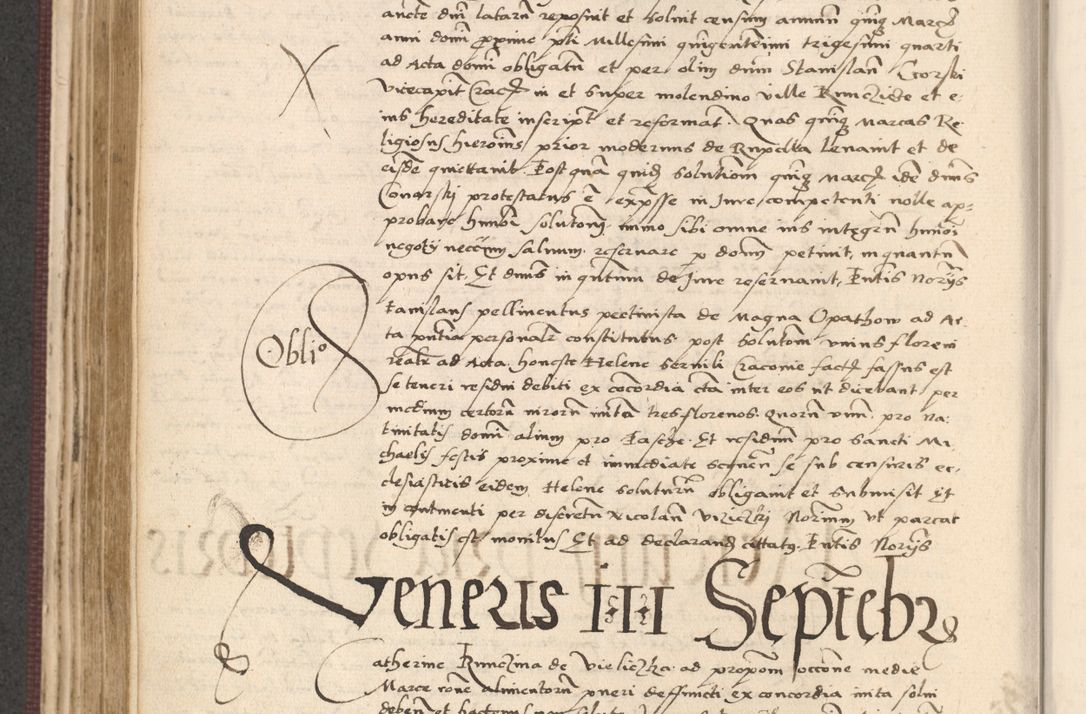 ancte dm̄ latarn̄ reposuit et soluit censum annuū quīqȝ Marcȝ
anni domī proxime p̄tⁱ Millesimi quīgentesimi trigesimi quarti
ad Acta domī obligatū et per olim dūm Stanislaū Czorski
vicecapit Cracȝ in et super molendino ville Kuncziche et e-
ius hereditate inscript et reformat. Quas quīqȝ Marcas Re-
ligiosus hieronīs prior modernus de Rupella leuauit et de
eisdē quittauit. Postquā quidȝ solutionī quīqȝ Marcȝ idē dn̄us
Conarski protestatus ē exp̄sse in Iure competenti nolle ap-
probare hm̄oī solutionī, immo sibi omne ius integrū hm̄oi
negotȷ̄ necc̄ium saluum reseruare p domī petiuit, inquantū
opus sit. Et dn̄us in q̄ntum de Iure reseruauit. P̄ntis Norijs
Oblio
Stanislaus pellinentus pectinista de Magna Opathow ad Ac-
ta pn̄tia personalr̄ constitutus post solutom̄ vnius floreni
realr̄ ad Acta honeste Helene Sermili Cracouie factȝ fassus est
se teneri residui debiti ex cōcordia cta inter eos ut dicebant per
medium certorū virorū iuxta tres florenos. Quorū vnū pro Na-
tiuitatis domī alium pro Pasche Et residuū pro sancti Mi-
chaelis festis proxime et immediate sequēn̄ se sub censuris ec-
clesiasticis eidem Helene soluturū obligauit et submisit Et
in cōtinenti per discretū Nicolaū Viziczki Norium ut parcat
obligatis est monitus Et ad declarandȝ cittatȝ. P̄ntis Norijs
Veneris III Septēbr
Catherine Kunczina de Vieliczka ad propom̄ occōne medie
Marce rōne alimentorū pueri deffuncti ex concordia inita solui